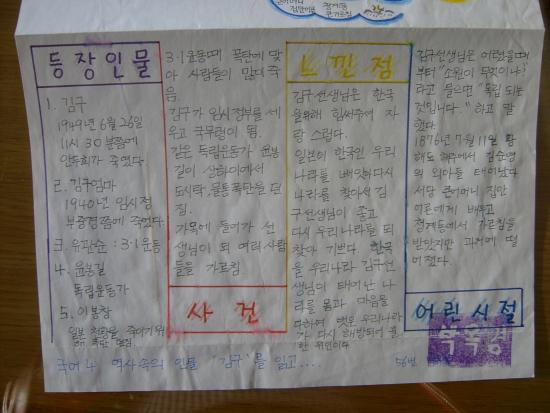 등장인물
1. 김구
1949년 6월 26일
11시 30분쯤에
안두희가 죽였다.
2. 김구엄마
1940년 임시정
부중경쪽에 죽었다
3. 유관순 : 3·1 운동
4. 윤봉길
독립운동가
5. 이봉창
일본 천황을 죽이기위
해 폭탄 던짐
3·1 운동때 폭탄에 맞
아 사람들이 많이 죽
음
김구가 임시정부를 세
우고 국무령이 됨.
같은 독립운동가 윤봉
길이 상하이에서
도시락, 물통 폭탄을 던
짐.
가목에 들어가 선
생님이 되 여러 사람
들을 가르침
사건
느낀점
김구선생님은 한국
을위해 힘써주에 자
랑 스럽다.
일본이 한국인 우리
나라를 빼앗하다시
나라를 찾아서 김
구선생님이 좋고
다시 우리나라를 되
찾아 기쁘다. 한국
을 우리나라 김구선
생님이 태어난 나
라를 몸과 마음을
다하여, 옛보 우리나라
가 다시 해방되어 불
한 위인이다
김구선생님은 어렸을때
부터 "소원이 무것이냐
라고 물으면 "독립 되는
것입니다." 하고 말
했다.
1876년 7월 11일 황
해도 해주에서 김순영
의 외아들 태어났다
서당 큰어머니 집안
어른에게 배우고
청계동에서 가르침을
받았지만 과거에 떨
어졌다.
어린시절
국어 4 역사속의 인물 "김구"를 읽고....
56번